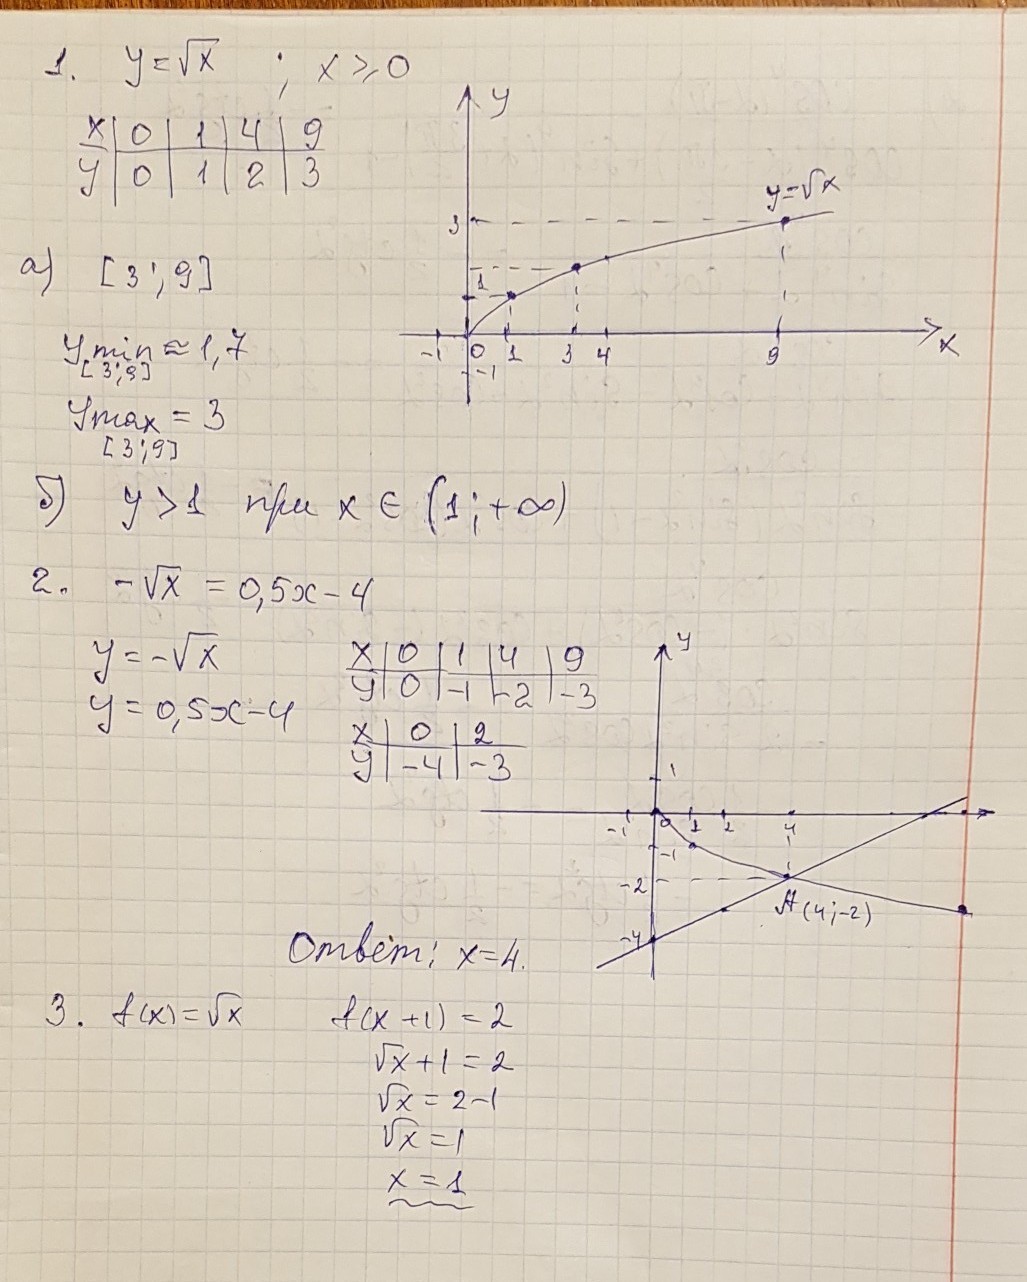 1. y = √x ; x ⩾ 0
x | 0 | 1 | 4 | 9
y | 0 | 1 | 2 | 3
y
y=√x
3
1
-1 0 1 3 4 9 x
-1
а) [3 ; 9]
y min ≈ 1,7
[3;9]
y max = 3
[3;9]
б) y > 1 при x ∈ (1 ; +∞)
2. -√x = 0,5x - 4
y = -√x
y = 0,5x - 4
x | 0 | 1 | 4 | 9
y | 0 | -1 | -2 | -3
x | 0 | 2
y | -4 | -3
y
1
-1 0 1 2 4
-1
-2
A (4;-2)
-4
Ответ: x = 4.
3. f(x) = √x f(x + 1) = 2
√x + 1 = 2
√x = 2-1
√x = 1
x = 1